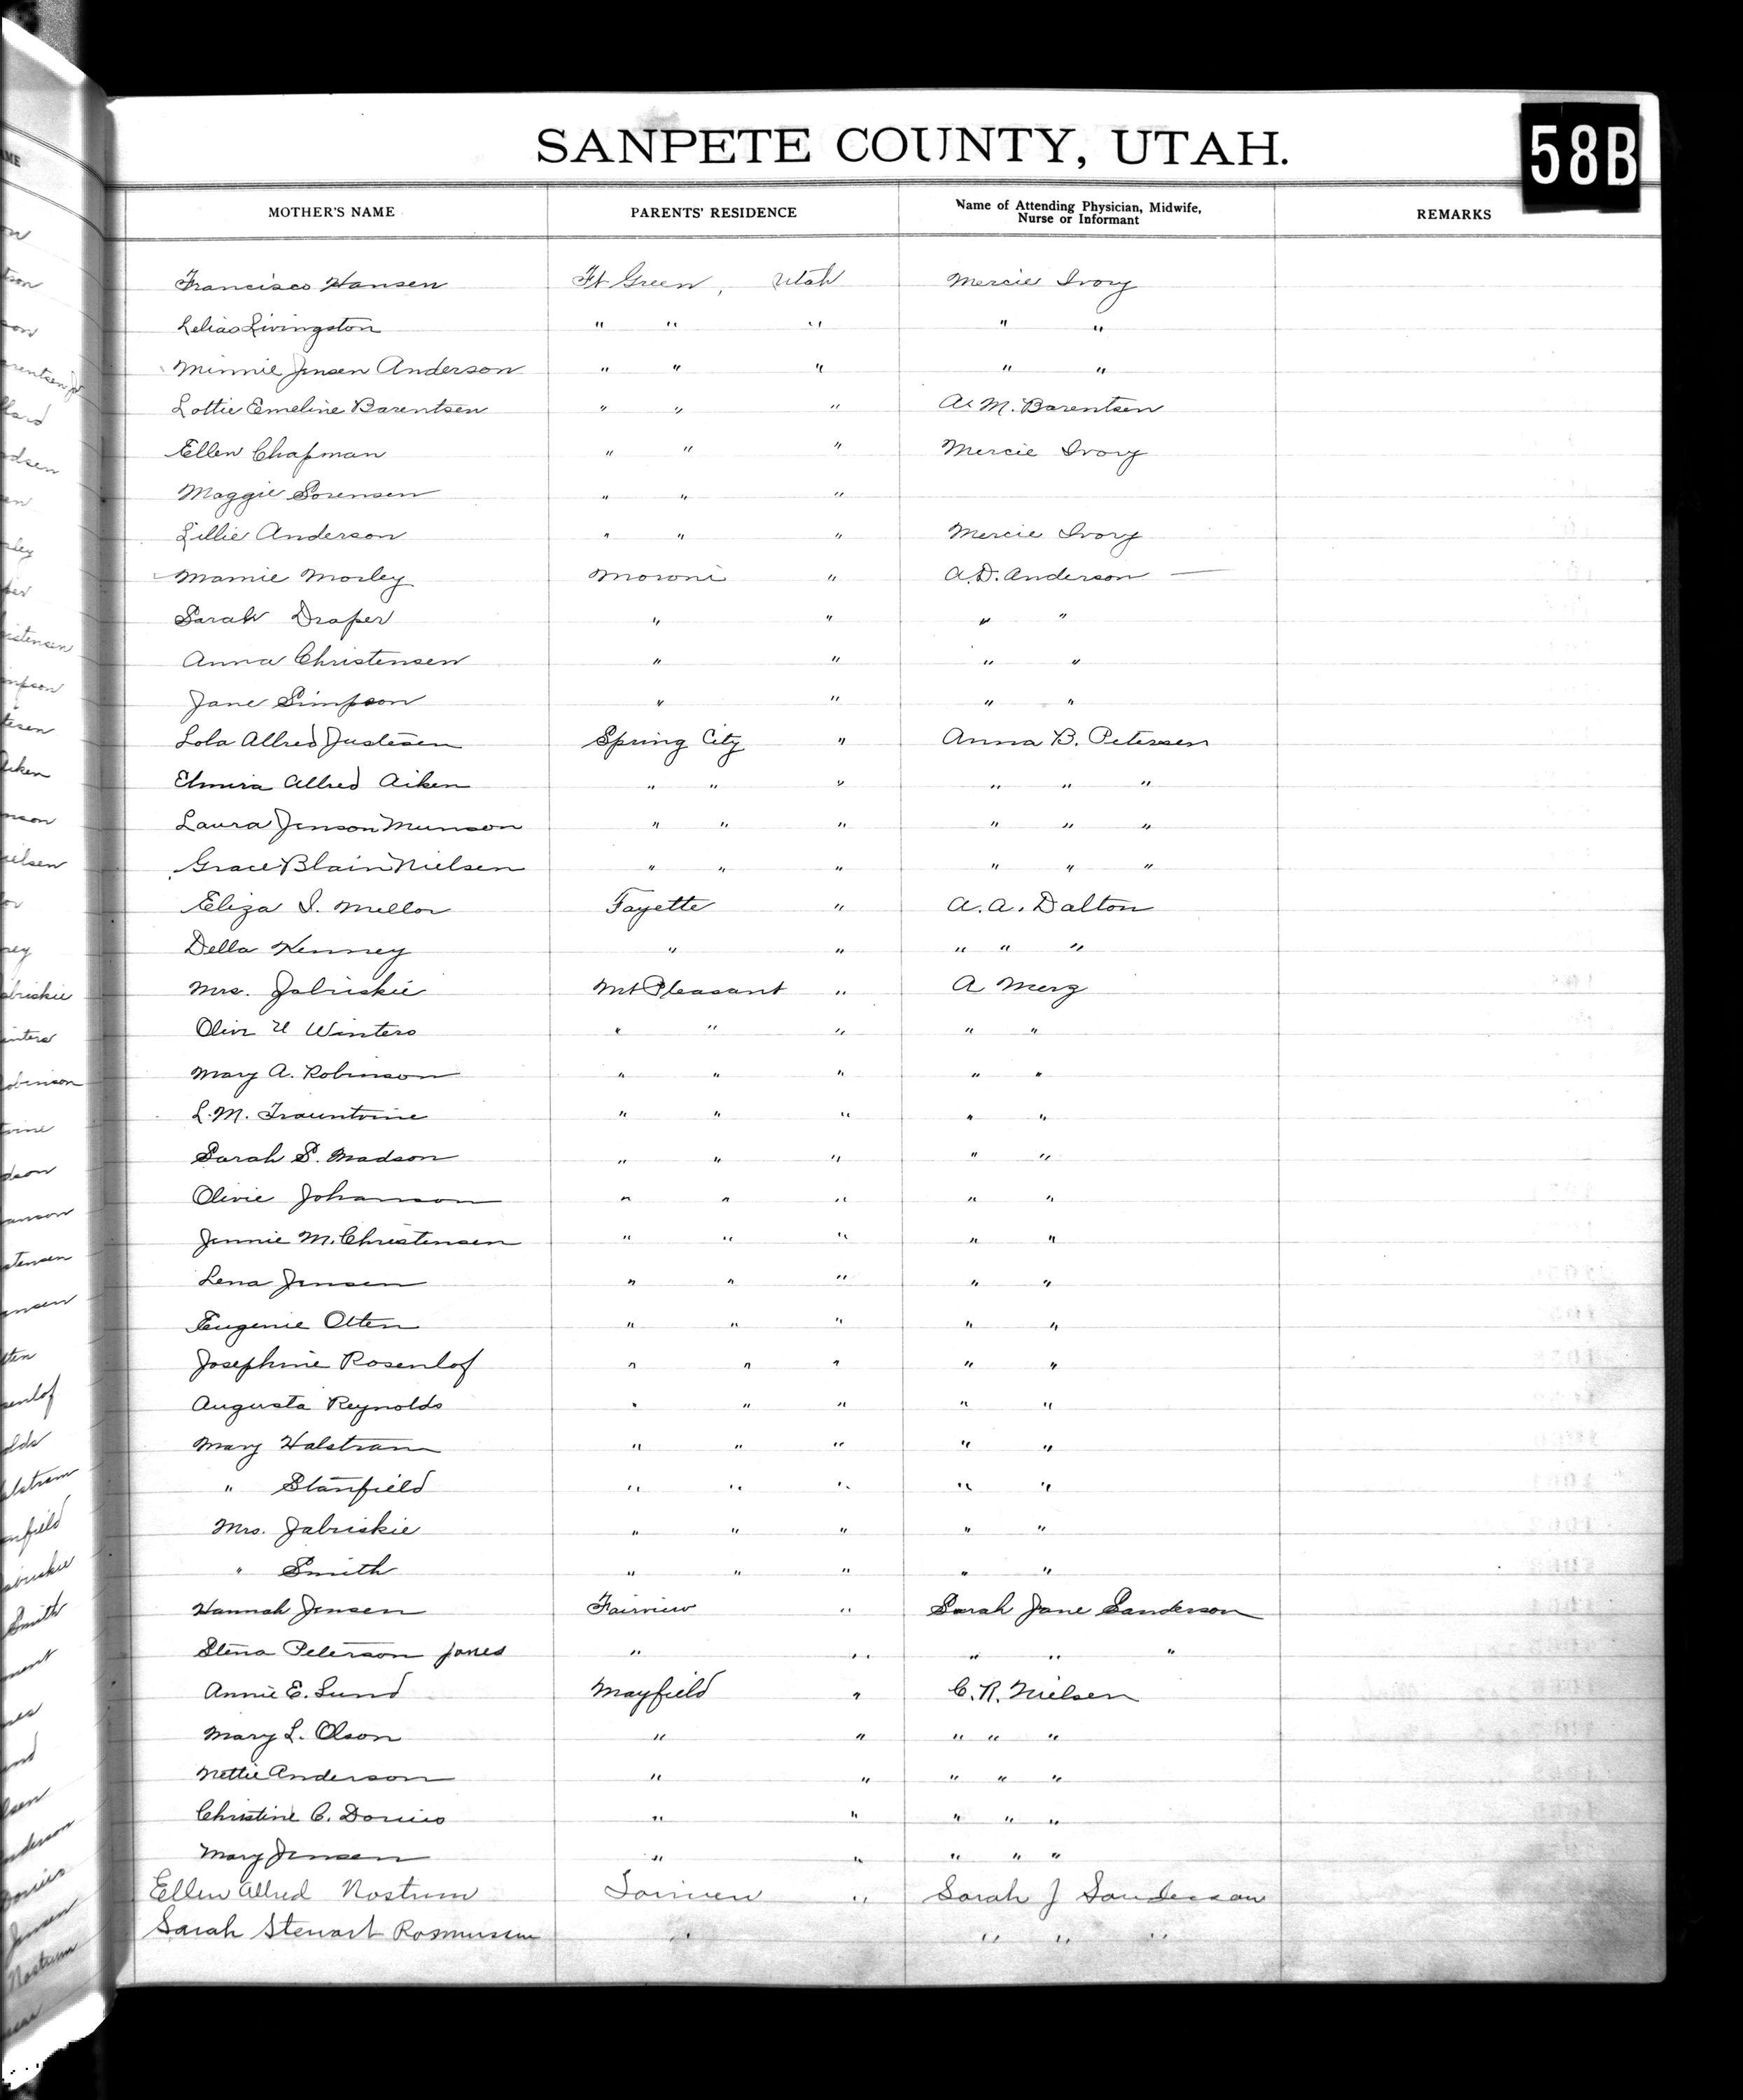 SANPETE COUNTY, UTAH.
58B
MOTHER'S NAME PARENTS' RESIDENCE Name of Attending Physician, Midwife, Nurse or Informant REMARKS
Francisco Hansen Ft Green, Utah Mercie Ivory
Lelias Livingston " " " " "
Minnie Jensen Anderson " " " " "
Lottie Emeline Barentsen " " " A. M. Barentsen
Ellen Chapman " " " Mercie Ivory
Maggie Sorensen " " "
Lillie Anderson " " " Mercie Ivory
Mamie Morley Moroni " A. D. Anderson —
Sarah Draper " " " "
Anna Christensen " " " "
Jane Simpson " " " "
Lola Allred Justesen Spring City " Anna B. Petersen
Elmira Allred Aiken " " " " " "
Laura Jenson Munson " " " " " "
Grace Blain Nielsen " " " " " "
Eliza I. Mellor Fayette " A. A. Dalton
Della Kenney " " " " "
Mrs. Zabriskie Mt Pleasant " A Merz
Olive U Winters " " " " "
Mary A. Robinson " " " " "
L. M. Trauntvine " " " " "
Sarah S. Madson " " " " "
Olivie Johanson " " " " "
Jennie M. Christensen " " " " "
Lena Jensen " " " " "
Eugenie Otten " " " " "
Josephine Rosenlof " " " " "
Augusta Reynolds " " " " "
Mary Halstrom " " " " "
" Stanfield " " " " "
Mrs. Zabriskie " " " " "
" Smith " " " " "
Hannah Jensen Fairview " Sarah Jane Sanderson
Stena Peterson Jones " " " " "
Annie E. Lund Mayfield " C. R. Nielsen
Mary L. Olson " " " " "
Nettie Anderson " " " " "
Christine C. Dorius " " " " "
Mary Jensen " " " " "
Ellen Allred Nostrum " Sarah J Sanderson
Sarah Stewart Rasmussen " " " "